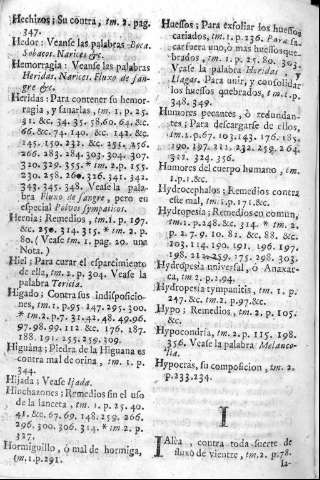 Hechizos; Su contra, tm. 2. pag.
347.
Hedor: Veanse las palabras Boca.
Sobacos. Narices &c.
Hemorragia: Veanse las palabras
Heridas. Narices. Fluxo de san-
gre &c.
Heridas: Para contener su hemor-
ragia, y sanarlas, tm. 1. p. 25.
31. &c. 34. 35. 58. 60. 64. &c.
66. &c. 74. 140. &c. 142. &c.
145. 150. 232. &c.
266. 283. 284. 303. 304. 307.
320. 329. 355. * tm. 2. p. 155.
230. 258. 260. 326. 341. 342.
343. 345. 348. Vease la pala-
bra Fluxo de sangre, pero en
especial Polvos sympaticos.
Hernia: Remedios, tm. 1. p. 197.
&c. 250. 314. 315. * tm. 2. p.
80. (Vease tm. 1. pag. 20. una
Nota.)
Hiel; Para curar el esparcimiento
de ella, tm. 2. p. 304. Vease la
palabra Tericia.
Higado; Contra sus indisposicio-
nes, tm. 1. p. 95. 147. 295. 300.
* tm. 2. p. 7. 31. 42. 48. 49. 96.
97. 98. 99. 112. &c. 176. 187.
188. 191. 255. 259. 309.
Higuana; Piedra de la Higuana es
contra mal de orina, tm. 1. p.
344.
Hijada: Vease Ijada.
Hinchazones; Remedios sin el uso
de la lanceta, tm. 1. p. 25. 40.
41. &c. 67. 69. 148. 259. 266.
296. 300. 306. 314. * tm. 2. p.
327.
Hormiguillo, ò mal de hormiga,
tm. 1. p. 291.
Huessos; Para exfoliar los huessos
cariados, tm. 1. p. 136. Para sa-
car fuera uno, ò mas huessos que-
brados, tm. 1. p. 25. 80. 303.
Vease la palabra Heridas, y
Llagas. Para unir, y consolidar
los huessos quebrados, tm. 1. p.
348. 349.
Humores pecantes, ò redundan-
tes; Para descargarse de ellos,
tm. 1. p. 67. 103. 143. 176. 185.
190. 197. 211. 232. 259. 264.
312. 324. 356.
Humores del cuerpo humano, tm.
1. p. 1. &c.
Hydrocephalos; Remedios contra
este mal, tm. 1. p. 171. &c.
Hydropesia; Remedios en comun,
tm. 1. p. 248. &c. 314. * tm. 2.
p. 2. 7. 9. 10. 81. &c. 88. &c.
103. 114. 190. 191. 196. 197.
198. 259. 275. 298. 303.
Hydropesia universal, ò Anaxar-
ca, tm. 2. p. 194.
Hydropesia tympanitis, tm. 1. p.
247. &c. tm. 2. p. 97. &c.
Hypo; Remedios, tm. 2. p. 105.
&c.
Hypocondria, tm. 2. p. 115. 198.
356. Vease la palabra Melanco-
lia.
Hypocràs, su composicion, tm. 2.
p. 233. 234.
I
IAlea, contra toda suerte de
fluxo de vientre, tm. 2. p. 78.
Ia-